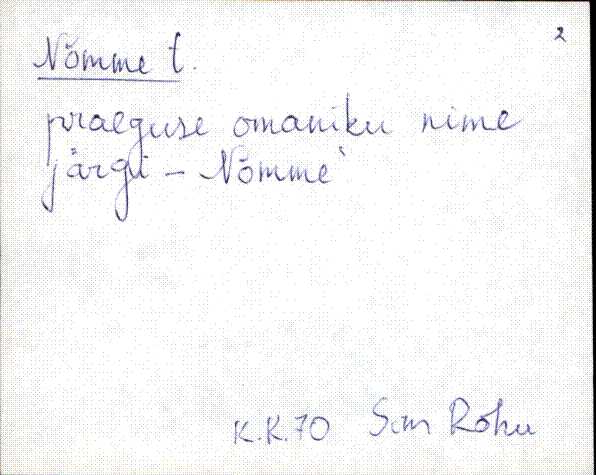 2
Nõmme t.
praeguse omaniku nime
järgi – Nõmme`
K.K.70 Sim Rõhu